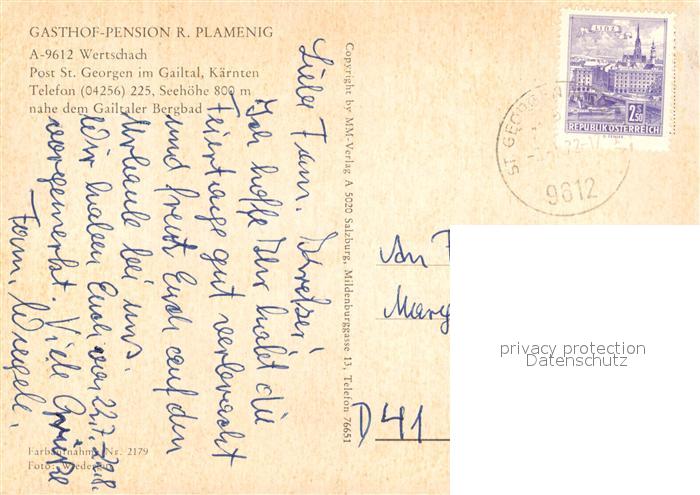 GASTHOF-PENSION R. PLAMENIG
A-9612 Wertschach
Post St. Georgen im Gailtal, Kärnten
Telefon (04256) 225, Seehöhe 800 m
nahe dem Gailtaler Bergbad
Liebe Fam.
Ich hoffe Ihr habt die
Feiertage gut verbracht
und freut Euch auf den
Urlaub bei uns.
Wir haben Euch von 22.7.
vorgemerkt. Viele Grüße
Fam.
Farbaufnahme Nr. 2179
Foto:
Copyright by MM-Verlag A 5020 Salzburg, Mildenburggasse 13, Telefon 76651
LINZ
2 S 50
REPUBLIK ÖSTERREICH
ST. GEORGEN
9612
An
D 41
privacy protection
Datenschutz